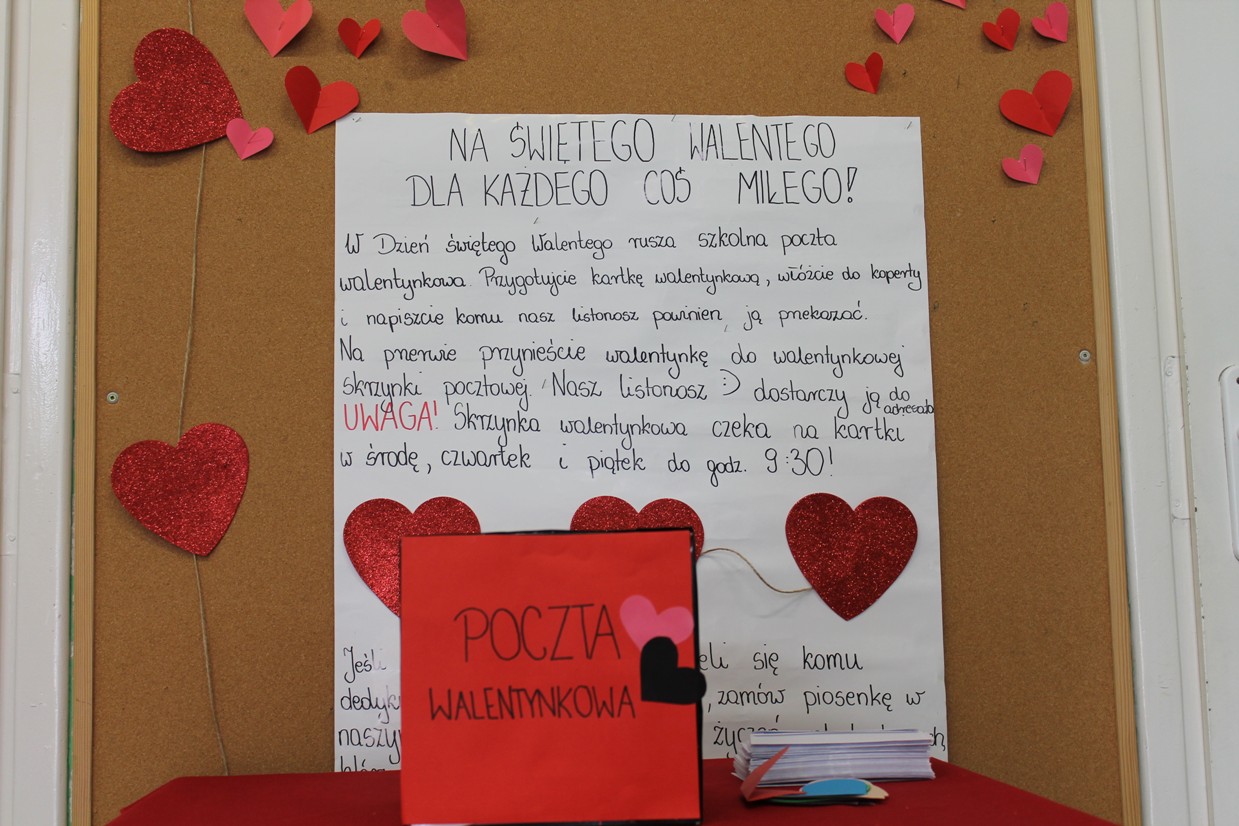 NA ŚWIĘTEGO WALENTEGO
DLA KAŻDEGO COŚ MIŁEGO!
W Dzień świętego Walentego rusza szkolna poczta
walentynkowa. Przygotujcie kartkę walentynkową, włóżcie do koperty
i napiszcie komu nasz listonosz powinien ją przekazać.
Na przerwie przynieście walentynkę do walentynkowej
skrzynki pocztowej. Nasz listonosz :) dostarczy ją do
adresata
UWAGA! Skrzynka walentynkowa czeka na kartki
w środę, czwartek i piątek do godz. 9:30!
Jeśli się komu
zamów piosenkę w
POCZTA
WALENTYNKOWA